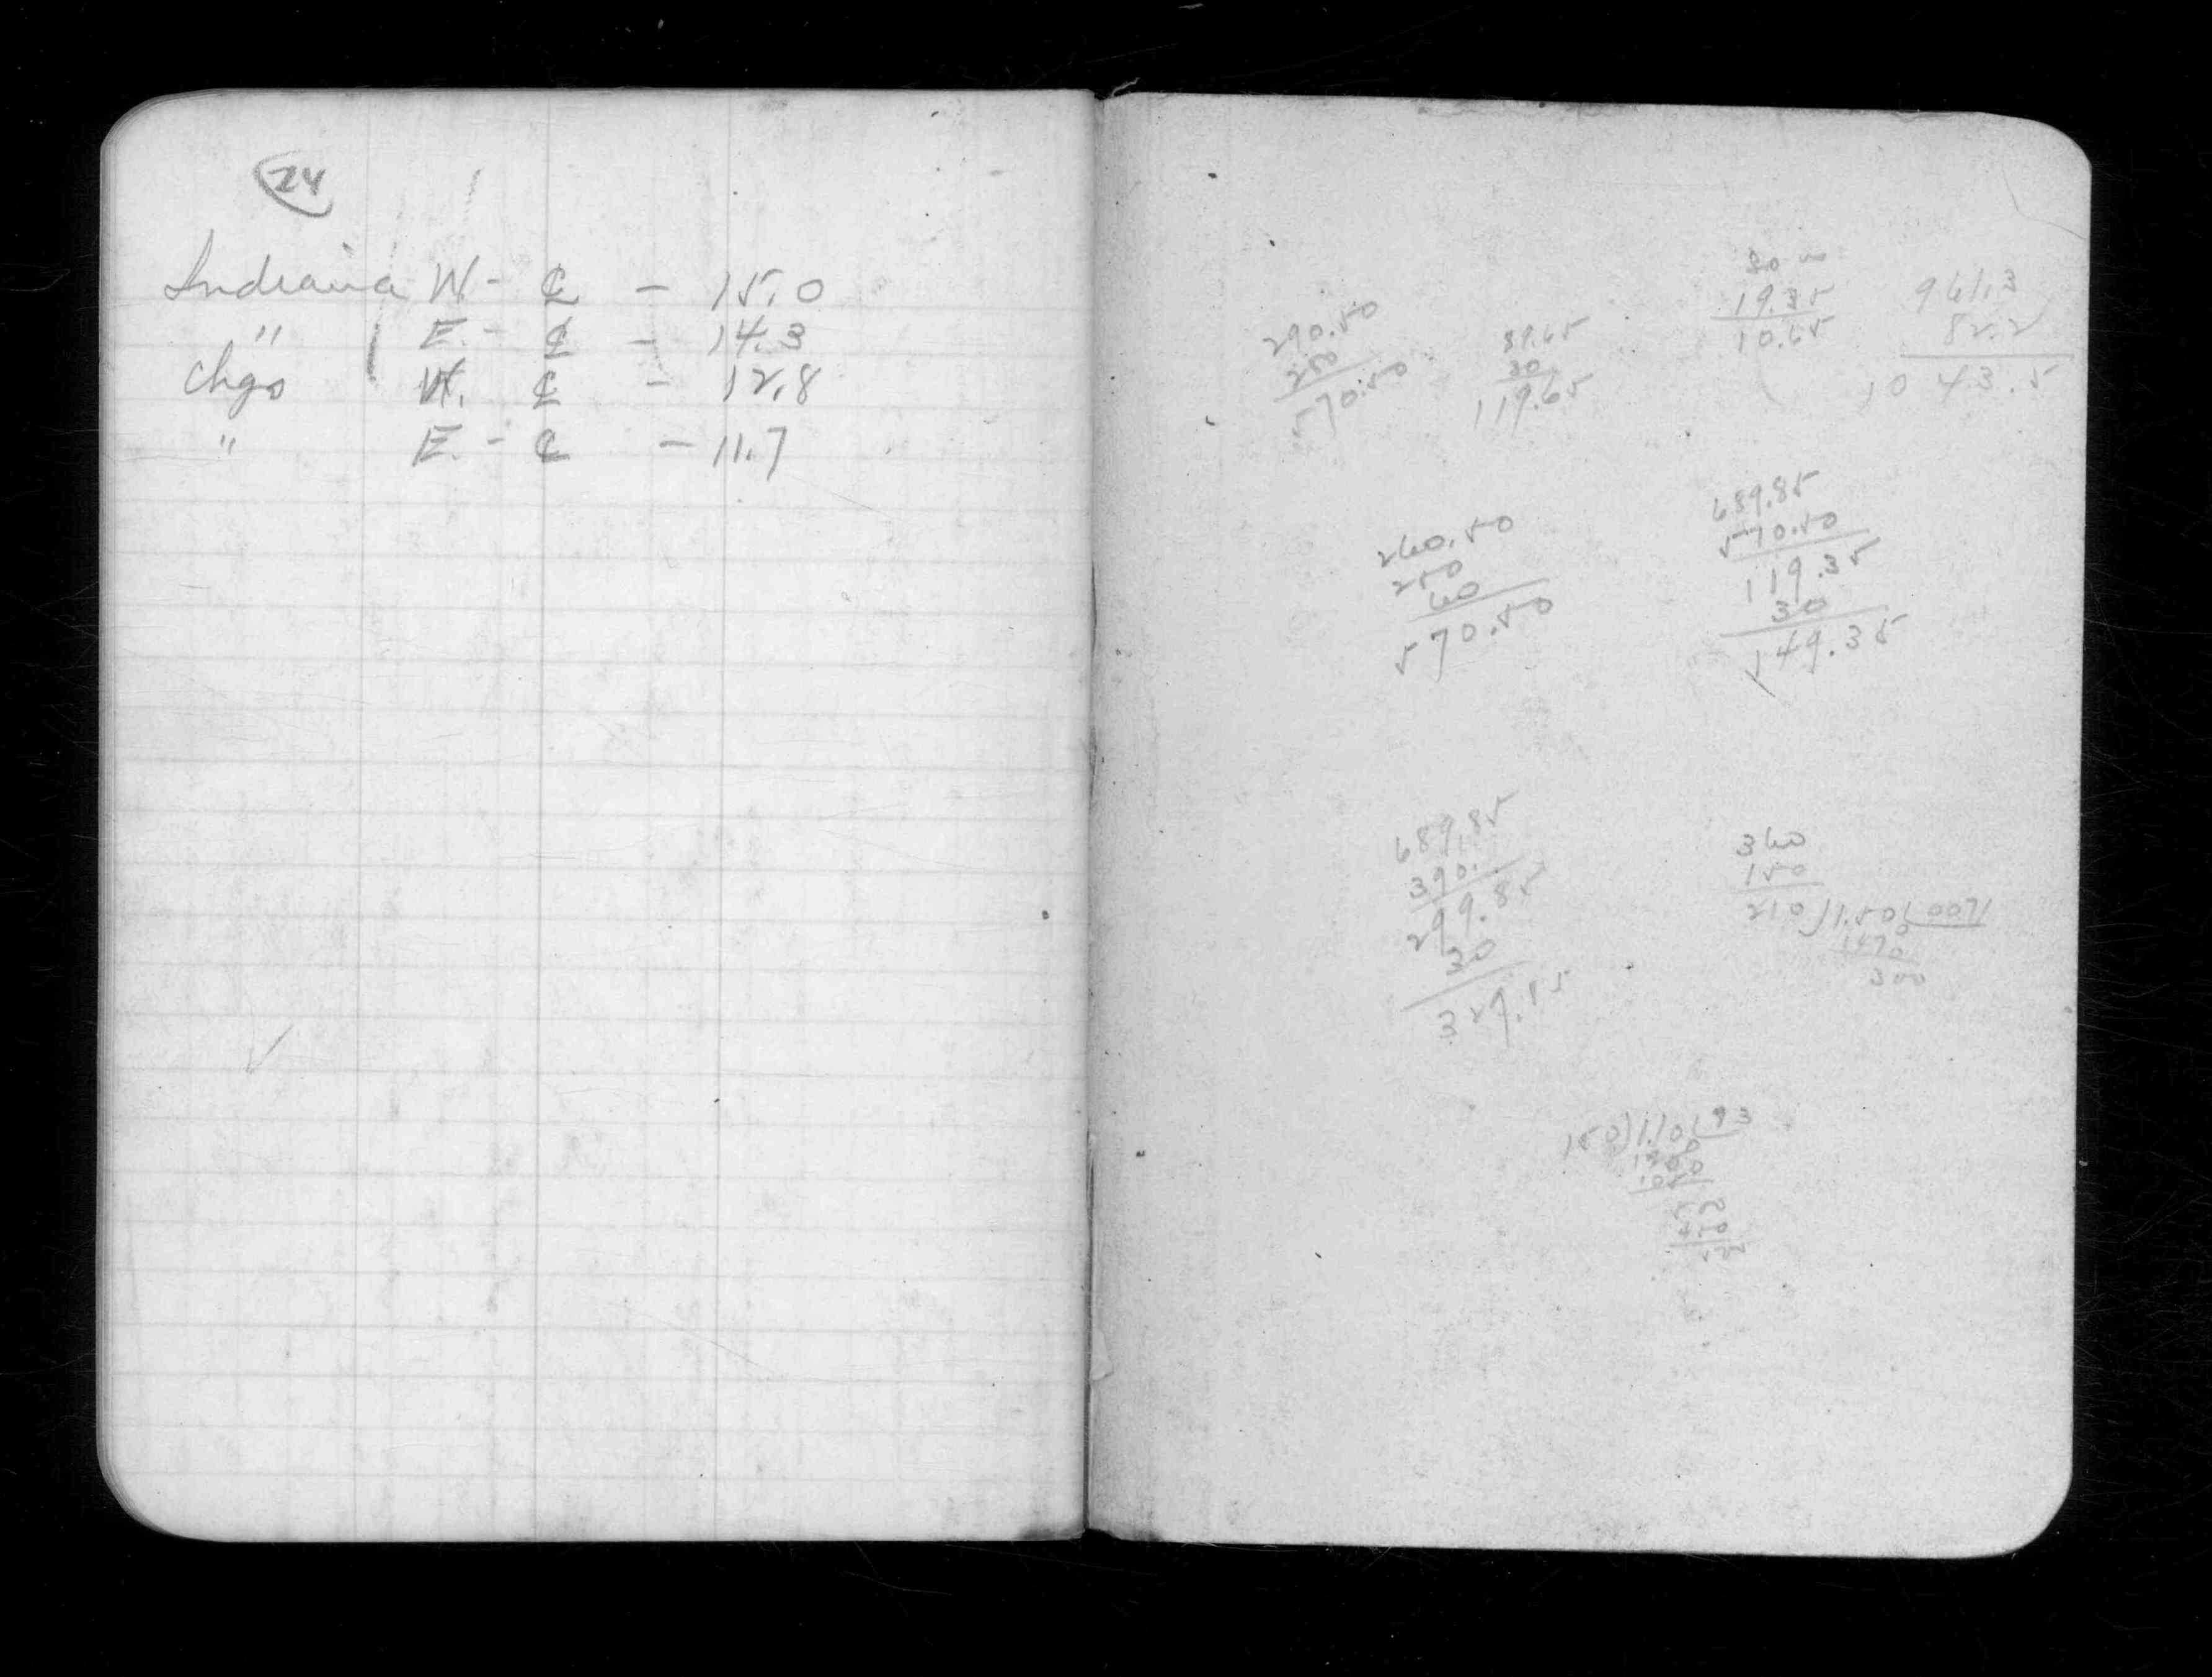 24
Indiana W - ℄ - 15.0
" E. - ℄ - 14.3
Chgo W. ℄ - 12.8
" E. - ℄ - 11.7
290.50
280
570.50
89.65
30
119.65
19.35
10.65
961.3
82.2
1043.5
260.50
250
60
570.50
689.85
570.50
119.35
30
149.35
689.85
390.
299.85
30
329.85
360
150
210)1.50(0071
1470
300
150)1.10(93